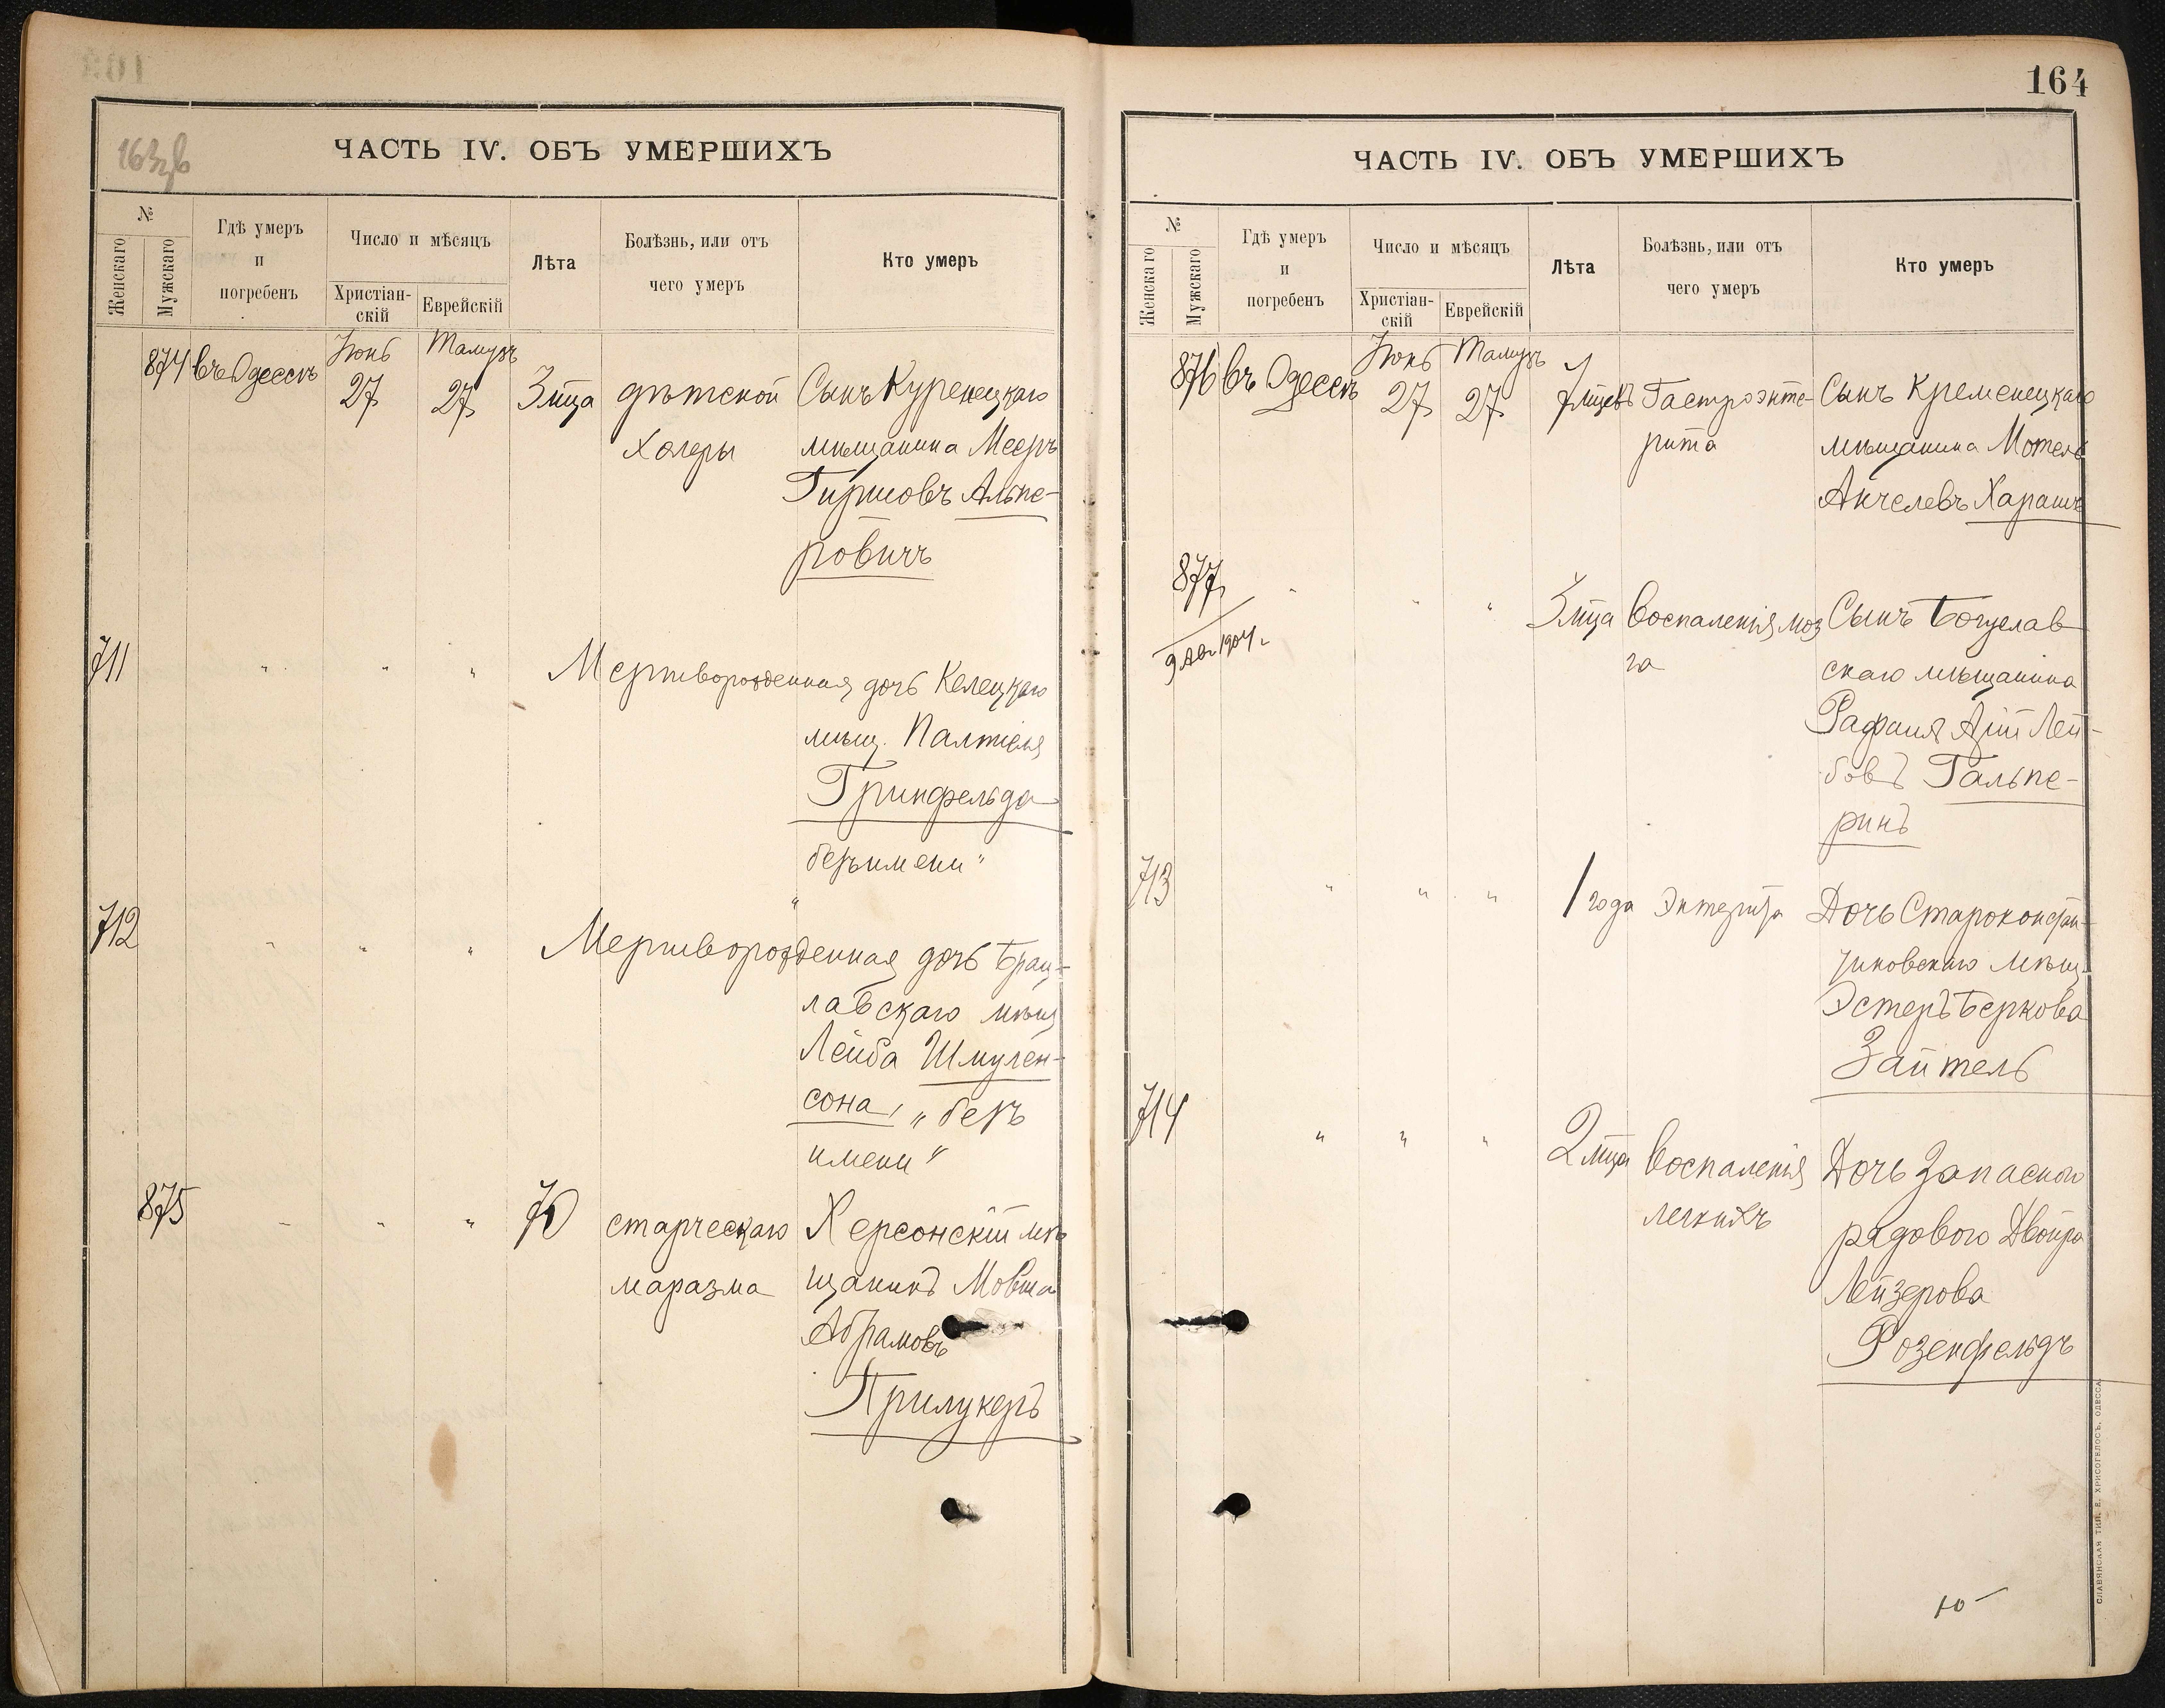 163об
ЧАСТЬ IV. ОБЪ УМЕРШИХЪ
№
Женскаго
Мужскаго
Гдѣ умеръ
и
погребенъ
Число и мѣсяцъ
Христіан-
скій
Еврейскій
Лѣта
Болѣзнь, или отъ
чего умеръ
Кто умеръ
874 въ Одессѣ Іюнь 27 Тамузъ 27 3 м̃ца дѣтской Сынъ Куренецкаго
холеры мѣщанина Мееръ
Гиршовъ Альпе-
ровичъ
711 " " " Мертворожденная дочь Келецкаго
мѣщ. Палтіеля
Гринфельда
безъ имени"
"
712 " " " Мертворожденная дочь Брац-
лавскаго мѣщ
Лейба Шмулен-
сона, "безъ
имени"
875 " " " 70 старческаго Херсонскій мѣ
маразма щанинъ Мовша
Абрамовъ
Прилукеръ
164
ЧАСТЬ IV. ОБЪ УМЕРШИХЪ
№
Женскаго
Мужскаго
Гдѣ умеръ
и
погребенъ
Число и мѣсяцъ
Христіан-
скій
Еврейскій
Лѣта
Болѣзнь, или отъ
чего умеръ
Кто умеръ
876 въ Одессѣ Іюнь 27 Тамузъ 27 7 м̃цевъ Гастроэнте- Сынъ Кременецкаго
рита мѣщанина Мотель
Анчелевъ Харашъ
877 " " " 3 м̃ца Воспаленія моз Сынъ Богуслав
га скаго мѣщанина
9 Ав. 1904 г.
Рафаил Арій Лей-
бовъ Гальпе-
ринъ
713 " " " 1 года Энтерита Дочь Староконстан-
тиновскаго мѣщ.
Эстеръ Беркова
Зайтель
714 " " " 2 м̃ца Воспаленія Дочь Запасного
легкихъ рядового Двойра
Лейзерова
Розенфельдъ
СЛАВЯНСКАЯ ТИП. Е. ХРИСОГЕЛОСЪ, ОДЕССА.